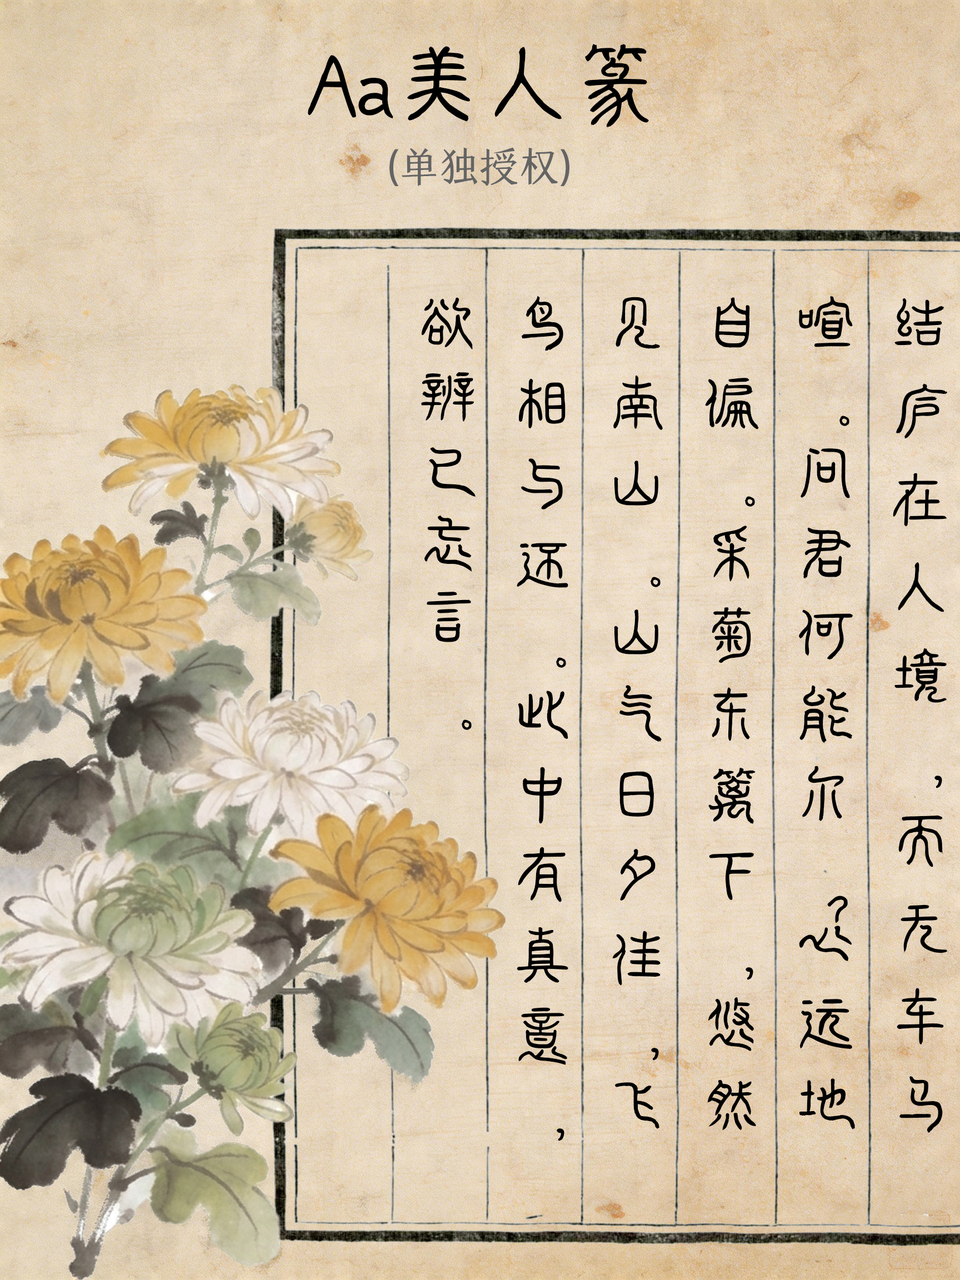 Aa美人篆
(单独授权)
结庐在人境，而无车马
喧。问君何能尔？心远地
自偏。采菊东篱下，悠然
见南山。山气日夕佳，飞
鸟相与还。此中有真意，
欲辨已忘言。